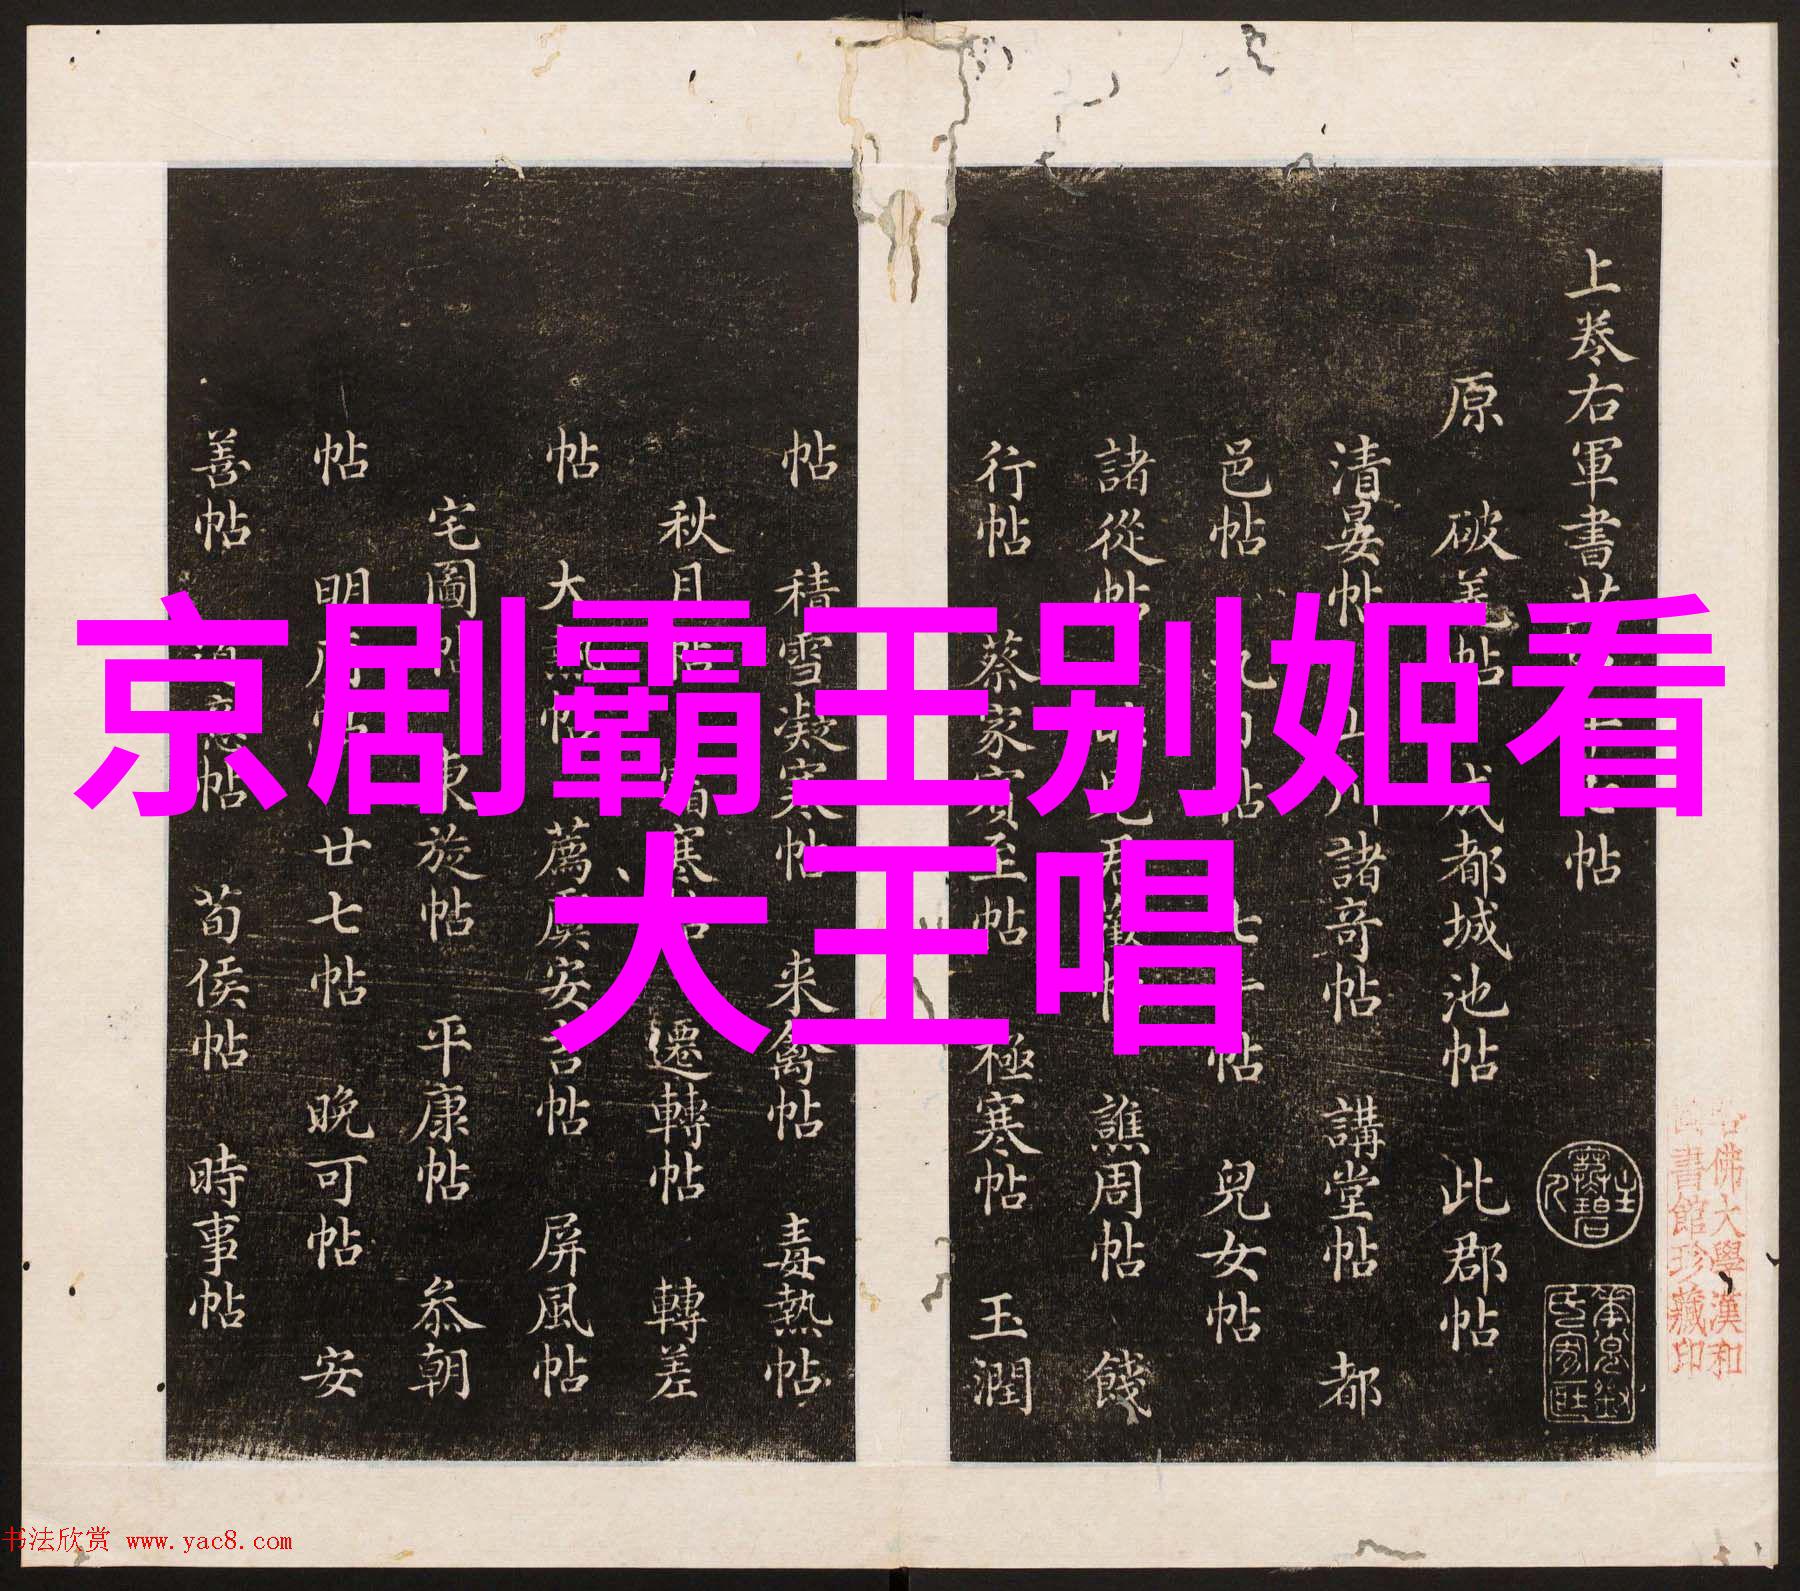 京剧霸王别姬看
大王唱
上卷右軍書
原 破羌帖 成都城池帖 此郡帖
清晏帖 諸奇帖 講堂帖 都
邑帖 七十帖 兒女帖
諸從帖 譙周帖 餞
行帖 蔡家賓至帖 極寒帖 玉潤
帖 積雪凝寒帖 来禽帖 毒熱帖
秋月帖 寒帖 遷轉帖 轉差
帖 大熱帖 薦虞安吉帖 屏風帖
宅圖帖 東旋帖 平康帖 叅朝
帖 明府帖 廿七帖 晚可帖 安
善帖 帖 荀侯帖 時事帖
佛大學漢和
書館珍藏印
书法欣赏 www.yac8.com